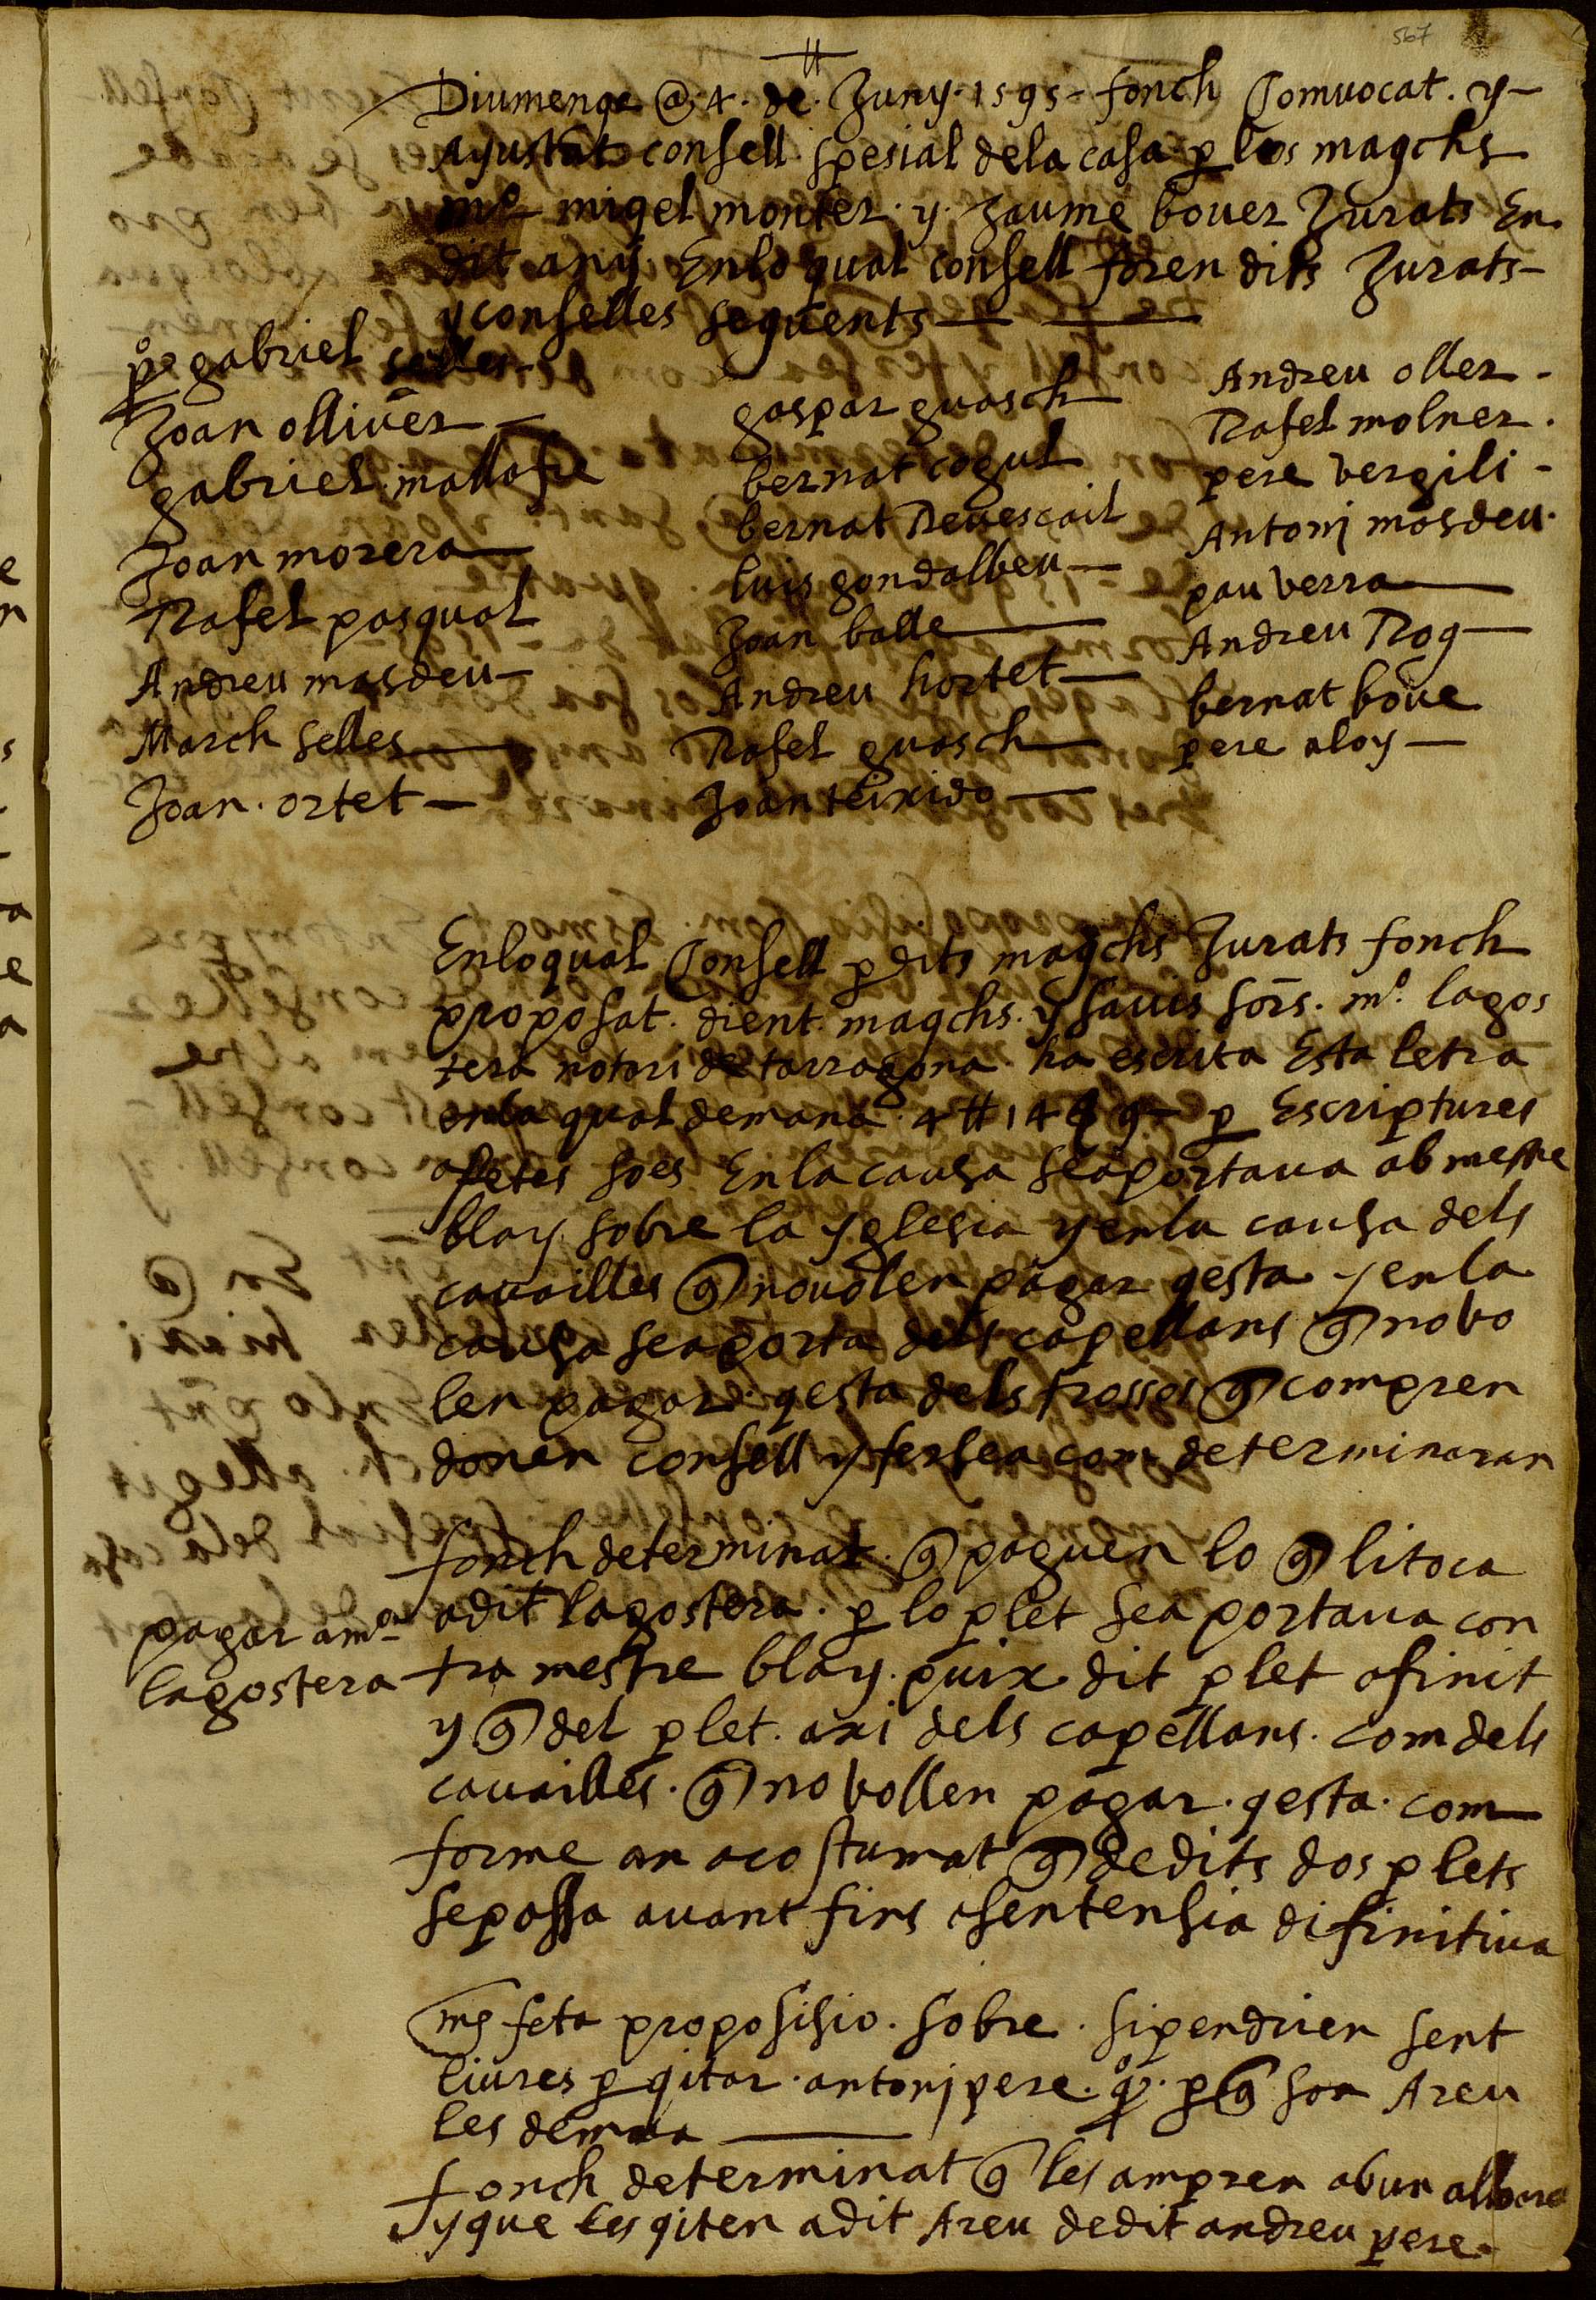 567
Diumenge @ 4. de. Juny. 1595 - fonch Comuocat. y -
Ajustat consell spesial dela casa p los magchs
mº miqel monter. y. Jaume bouer Jurats En
dit any. Enlo qual consell foren dits Jurats -
y conselles seguents
pº gabriel selles -
Joan olliuer
gabriel mallofre
Joan morera
Rafel pasqual
Andreu masdeu -
March selles
Joan. ortet -
gaspar guasch
bernat cogul
bernat Reuescail
luis gondalbeu -
Joan balle
Andreu hortet -
Rafel guasch
Joan teixido
Andreu oller -
Rafel molner.
pere vergili -
Antonj masdeu.
pau verra
Andreu Rog
bernat boue
pere aloy -
Enloqual Consell p dits magchs Jurats fonch
proposat. dient. magchs. y sauis sors. mº. lagos
tera notari de tarragona. ha escrita Esta letra
enla qual demana. 4 ll 14 ß 9 - p Escriptures
afetes soes Enla causa seaportaua ab mestre
blay. sobre la yglesia y enla causa dels
cauailles q nouolen pagar qesta y enla
causa seaporta dels capellans q no vo
len pagar. qesta dels frosses q compren
donen consell y fersea com determinaran
fonch determinat. q paguen lo q litoca
adit lagostera. p lo plet sea portaua con
tra mestre blay. puix dit plet afinit
y q del plet. axi dels capellans. com dels
cauailles. q no vollen pagar. qesta. com
forme an acostumat q dedits dos plets
sepassa auant fins asentensia difinitiua
pagar a mº
lagostera
ms feta proposisio. sobre. sipendrien sent
liures p qitar. antonj pere. qº. p q son Areu
les demana
fonch determinat q les ampren ab un albara
y que les qiten adit Areu dedit andreu pere.